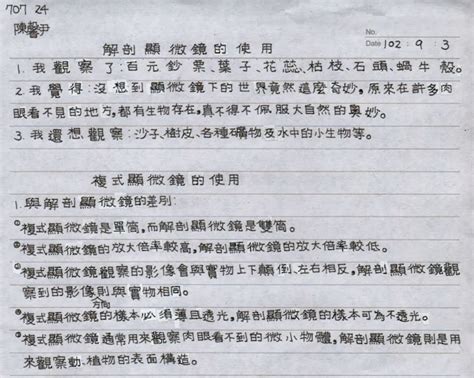 707 24
陳馨尹
No.
Date 102 . 9 . 3
解剖顯微鏡的使用
1. 我觀察了：百元鈔票、葉子、花蕊、枯枝、石頭、蝸牛殼。
2. 我覺得：沒想到顯微鏡下的世界竟然這麼奇妙，原來在許多肉
眼看不見的地方，都有生物存在，真不得不佩服大自然的奧妙。
3. 我還想觀察：沙子、樹皮、各種礦物及水中的小生物等。
複式顯微鏡的使用
1. 與解剖顯微鏡的差別：
①複式顯微鏡是單筒，而解剖顯微鏡是雙筒。
②複式顯微鏡的放大倍率較高，解剖顯微鏡的放大倍率較低。
③複式顯微鏡觀察的影像會與實物上下顛倒、左右相反，解剖顯微鏡觀
察到的影像方向則與實物相同。
④複式顯微鏡的樣本必須薄且透光，解剖顯微鏡的樣本可為不透光。
⑤複式顯微鏡通常用來觀察肉眼看不到的微小物體，解剖顯微鏡則是用
來觀察動、植物的表面構造。